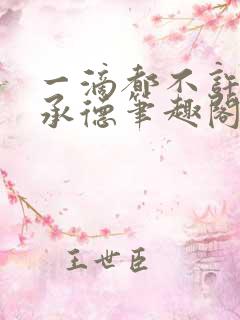 一滴都不许
承德笔趣阁
王世臣